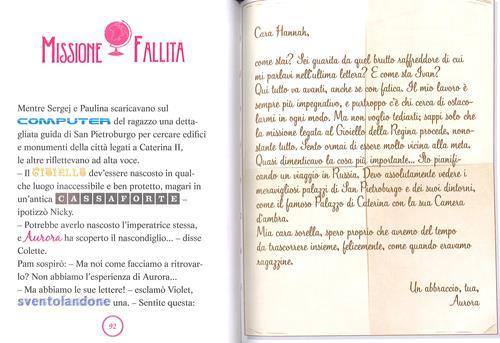 MISSIONE FALLITA
Mentre Sergej e Paulina scaricavano sul
COMPUTER del ragazzo una detta-
gliata guida di San Pietroburgo per cercare edifici
e monumenti della città legati a Caterina II,
le altre riflettevano ad alta voce.
– Il GIOIELLO dev'essere nascosto in qual-
che luogo inaccessibile e ben protetto, magari in
un'antica CASSAFORTE –
ipotizzò Nicky.
– Potrebbe averlo nascosto l'imperatrice stessa,
e Aurora ha scoperto il nascondiglio... – disse
Colette.
Pam sospirò: – Ma noi come facciamo a ritrovar-
lo? Non abbiamo l'esperienza di Aurora...
– Ma abbiamo le sue lettere! – esclamò Violet,
sventolandone una. – Sentite questa:
92
Cara Hannah,
come stai? Sei guarita da quel brutto raffreddore di cui
mi parlavi nell'ultima lettera? E come sta Ivan?
Qui tutto va avanti, anche se con fatica. Il mio lavoro è
sempre più impegnativo, e purtroppo c'è chi cerca di ostaco-
larmi in ogni modo. Ma non voglio tediarti; sappi solo che
la missione legata al Gioiello della Regina procede, nono-
stante tutto. Sento ormai di essere molto vicina alla meta.
Quasi dimenticavo la cosa più importante... Sto pianifi-
cando un viaggio in Russia. Devo assolutamente vedere i
meravigliosi palazzi di San Pietroburgo e dei suoi dintorni,
come il famoso Palazzo di Caterina con la sua Camera
d'ambra.
Mia cara sorella, spero proprio che avremo del tempo
da trascorrere insieme, felicemente, come quando eravamo
ragazzine.
Un abbraccio, tua,
Aurora